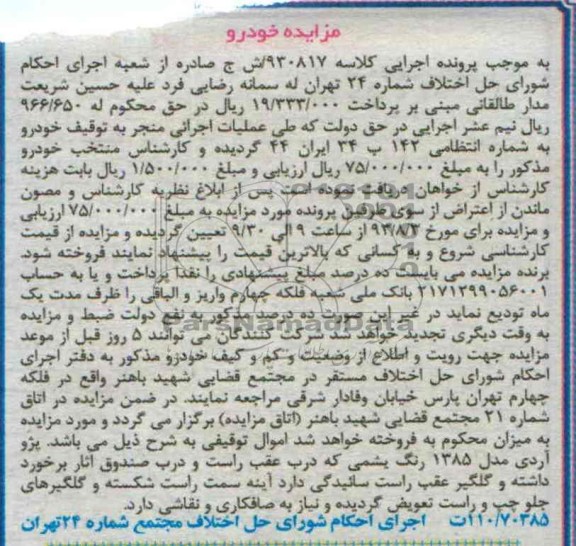 مزایده خودرو
به موجب پرونده اجرایی کلاسه ۹۳۰۸۱۷/ش ح صادره از شعبه اجرای احکام
شورای حل اختلاف شماره ۲۴ تهران له سمانه رضایی فرد علیه حسین شریعت
مدار طالقانی مبنی بر پرداخت ۱۹/۳۳۳/۰۰۰ ریال در حق محکوم له ۹۶۶/۶۵۰
ریال نیم عشر اجرایی در حق دولت که طی عملیات اجرائی منجر به توقیف خودرو
به شماره انتظامی ۱۴۲ ب ۳۴ ایران ۴۴ گردیده و کارشناس منتخب خودرو
مذکور را به مبلغ ۷۵/۰۰۰/۰۰۰ ریال ارزیابی و مبلغ ۱/۵۰۰/۰۰۰ ریال بابت هزینه
کارشناس از خواهان دریافت نموده است پس از ابلاغ نظریه کارشناس و مصون
ماندن از اعتراض از سوی طرفین پرونده مورد مزایده به مبلغ ۷۵/۰۰۰/۰۰۰ ارزیابی
و مزایده برای مورخ ۹۳/۸/۳ از ساعت ۹ الی ۹/۳۰ تعیین گردیده و مزایده از قیمت
کارشناسی شروع و به کسانی که بالاترین قیمت را پیشنهاد نمایند فروخته شود.
برنده مزایده می بایست ده درصد مبلغ پیشنهادی را نقدا پرداخت و یا به حساب
۲۱۷۱۳۹۹۰۵۶۰۰۱ بانک ملی شعبه فلکه چهارم واریز و الباقی را ظرف مدت یک
ماه تودیع نماید در غیر این صورت ده درصد مذکور به نفع دولت ضبط و مزایده
به وقت دیگری تجدید خواهد شد شرکت کنندگان می توانند ۵ روز قبل از موعد
مزایده جهت رویت و اطلاع از وضعیت و کم و کیف خودرو مذکور به دفتر اجرای
احکام شورای حل اختلاف مستقر در مجتمع قضایی شهید باهنر واقع در فلکه
چهارم تهران پارس خیابان وفادار شرقی مراجعه نمایند. در ضمن مزایده در اتاق
شماره ۲۱ مجتمع قضایی شهید باهنر (اتاق مزایده) برگزار می گردد و مورد مزایده
به میزان محکوم به فروخته خواهد شد اموال توقیفی به شرح ذیل می باشد. پژو
آردی مدل ۱۳۸۵ رنگ یشمی که درب عقب راست و درب صندوق آثار برخورد
داشته و گلگیر عقب راست سائیدگی دارد آینه سمت راست شکسته و گلگیرهای
جلو چپ و راست تعویض گردیده و نیاز به صافکاری و نقاشی دارد.
۱۱۰/۷۰۳۸۵ت اجرای احکام شورای حل اختلاف مجتمع شماره ۲۴تهران